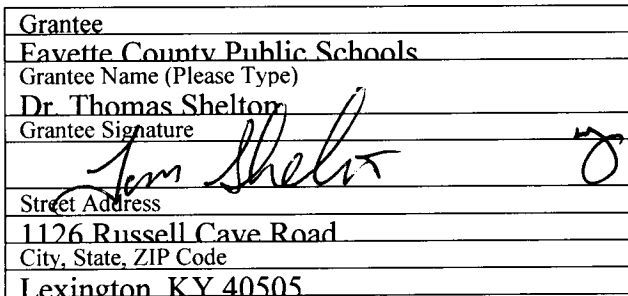 Grantee
Fayette County Public Schools
Grantee Name (Please Type)
Dr. Thomas Shelton
Grantee Signature
Tom Shelton
Street Address
1126 Russell Cave Road
City, State, ZIP Code
Lexington, KY 40505